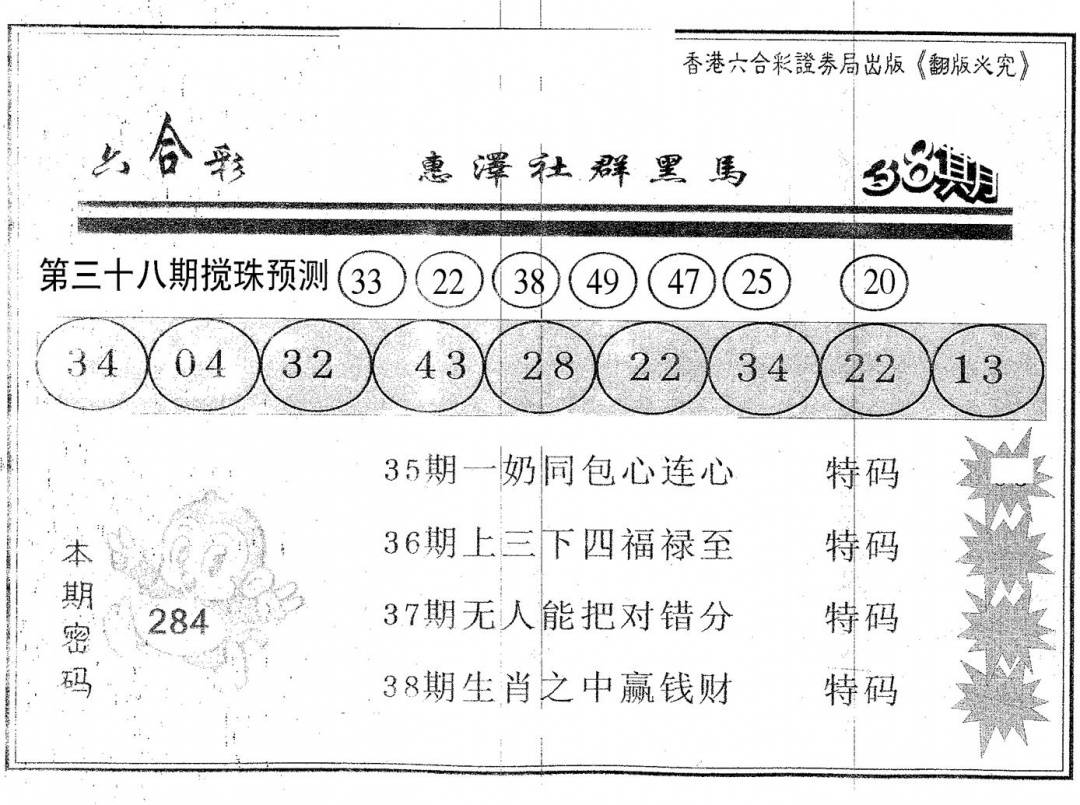 香港六合彩證券局出版《翻版必究》
六合彩 惠澤社群黑馬 38期
第三十八期搅珠预测 33 22 38 49 47 25 20
34 04 32 43 28 22 34 22 13
35期一奶同包心连心 特码
36期上三下四福禄至 特码
37期无人能把对错分 特码
38期生肖之中赢钱财 特码
本期密码
284